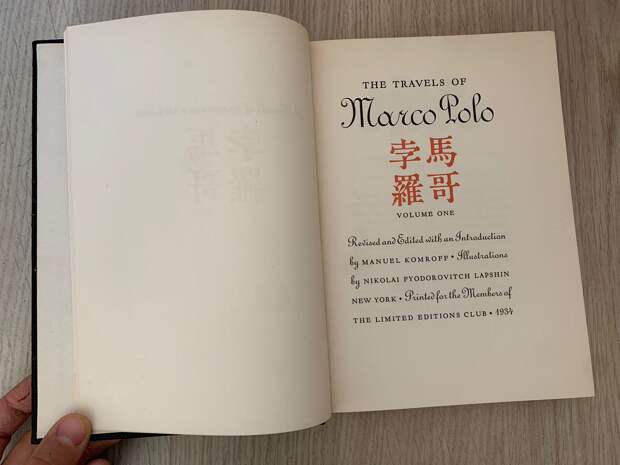 THE TRAVELS OF
Marco Polo
孛馬
羅哥
VOLUME ONE
Revised and Edited with an Introduction
by MANUEL KOMROFF • Illustrations
by NIKOLAI FYODOROVITCH LAPSHIN
NEW YORK • Printed for the Members of
THE LIMITED EDITIONS CLUB • 1934